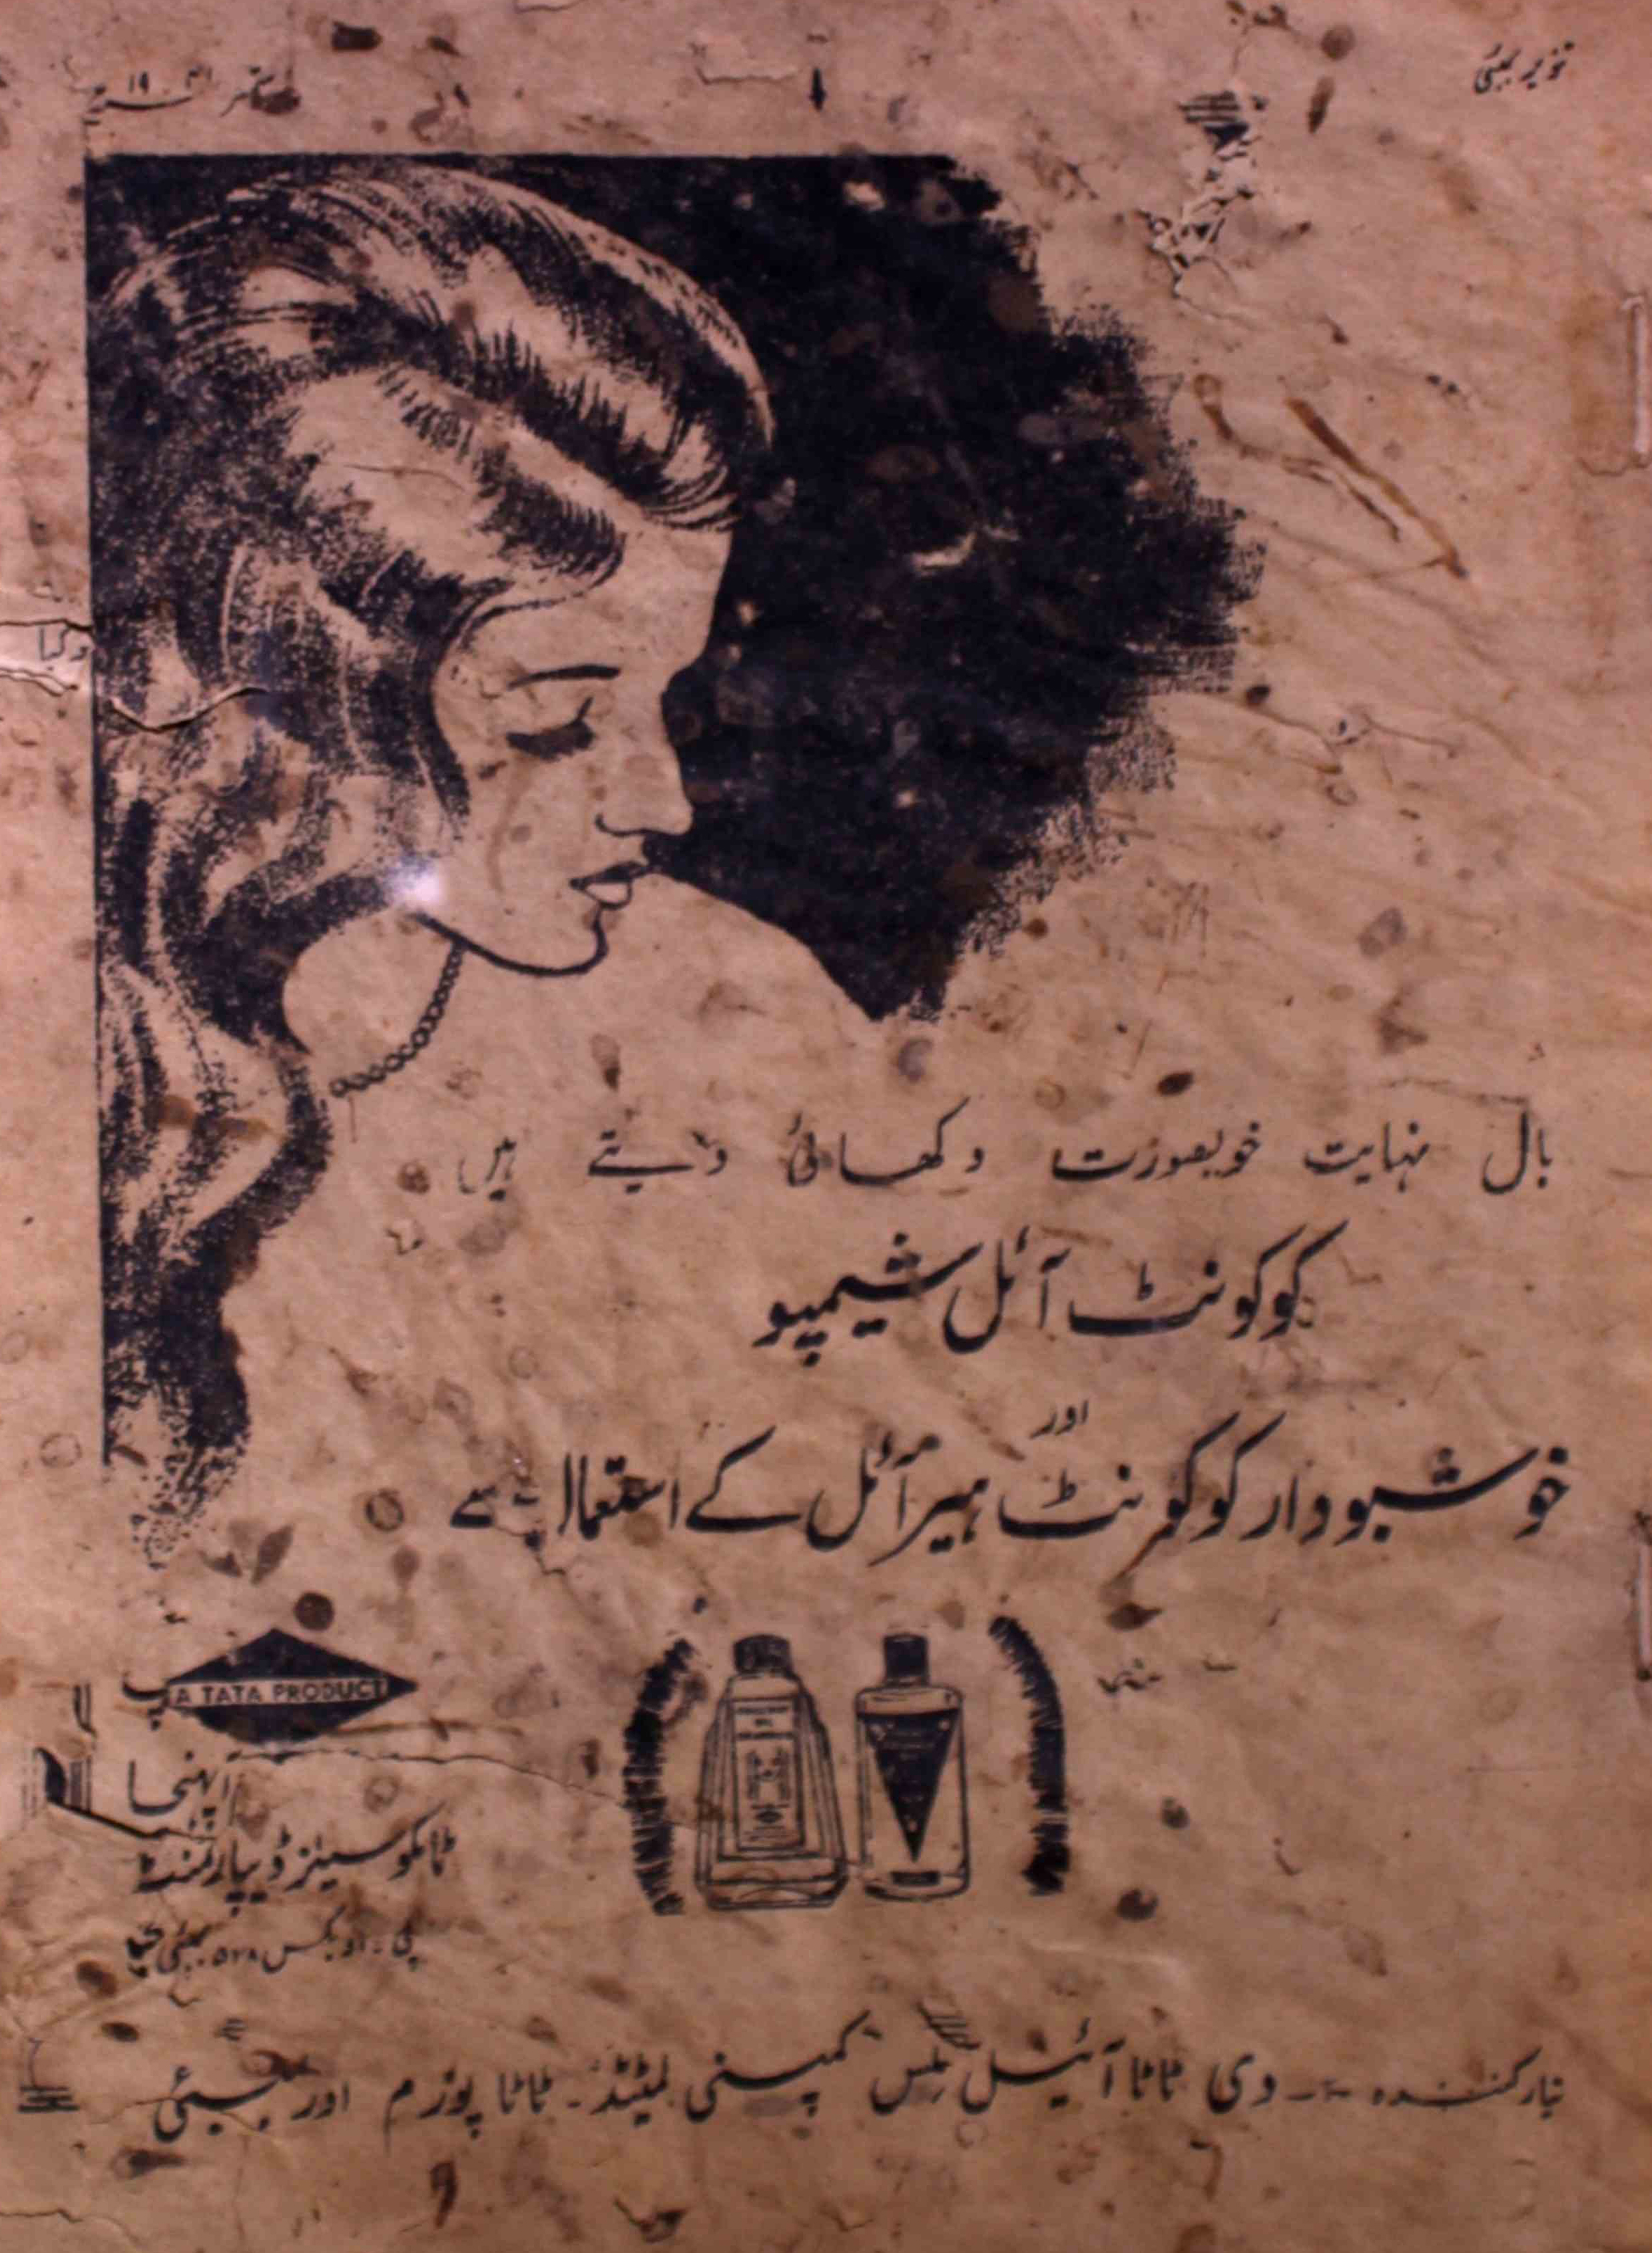 تنویر بمبئی
ستمبر
بال نہایت خوبصورت دکھائی دیتے ہیں
کوکونٹ آئل شیمپو
اور
خوشبودار کوکونٹ ہیر آئل کے استعمال سے
A TATA PRODUCT
ٹامکو سیلز ڈیپارٹمنٹ
پی۔ او بکس ۵۲۸ بمبئی
تیار کنندہ :۔ دی ٹاٹا آئیل ملس کمپنی لمیٹڈ۔ ٹاٹا پورم اور بمبئی